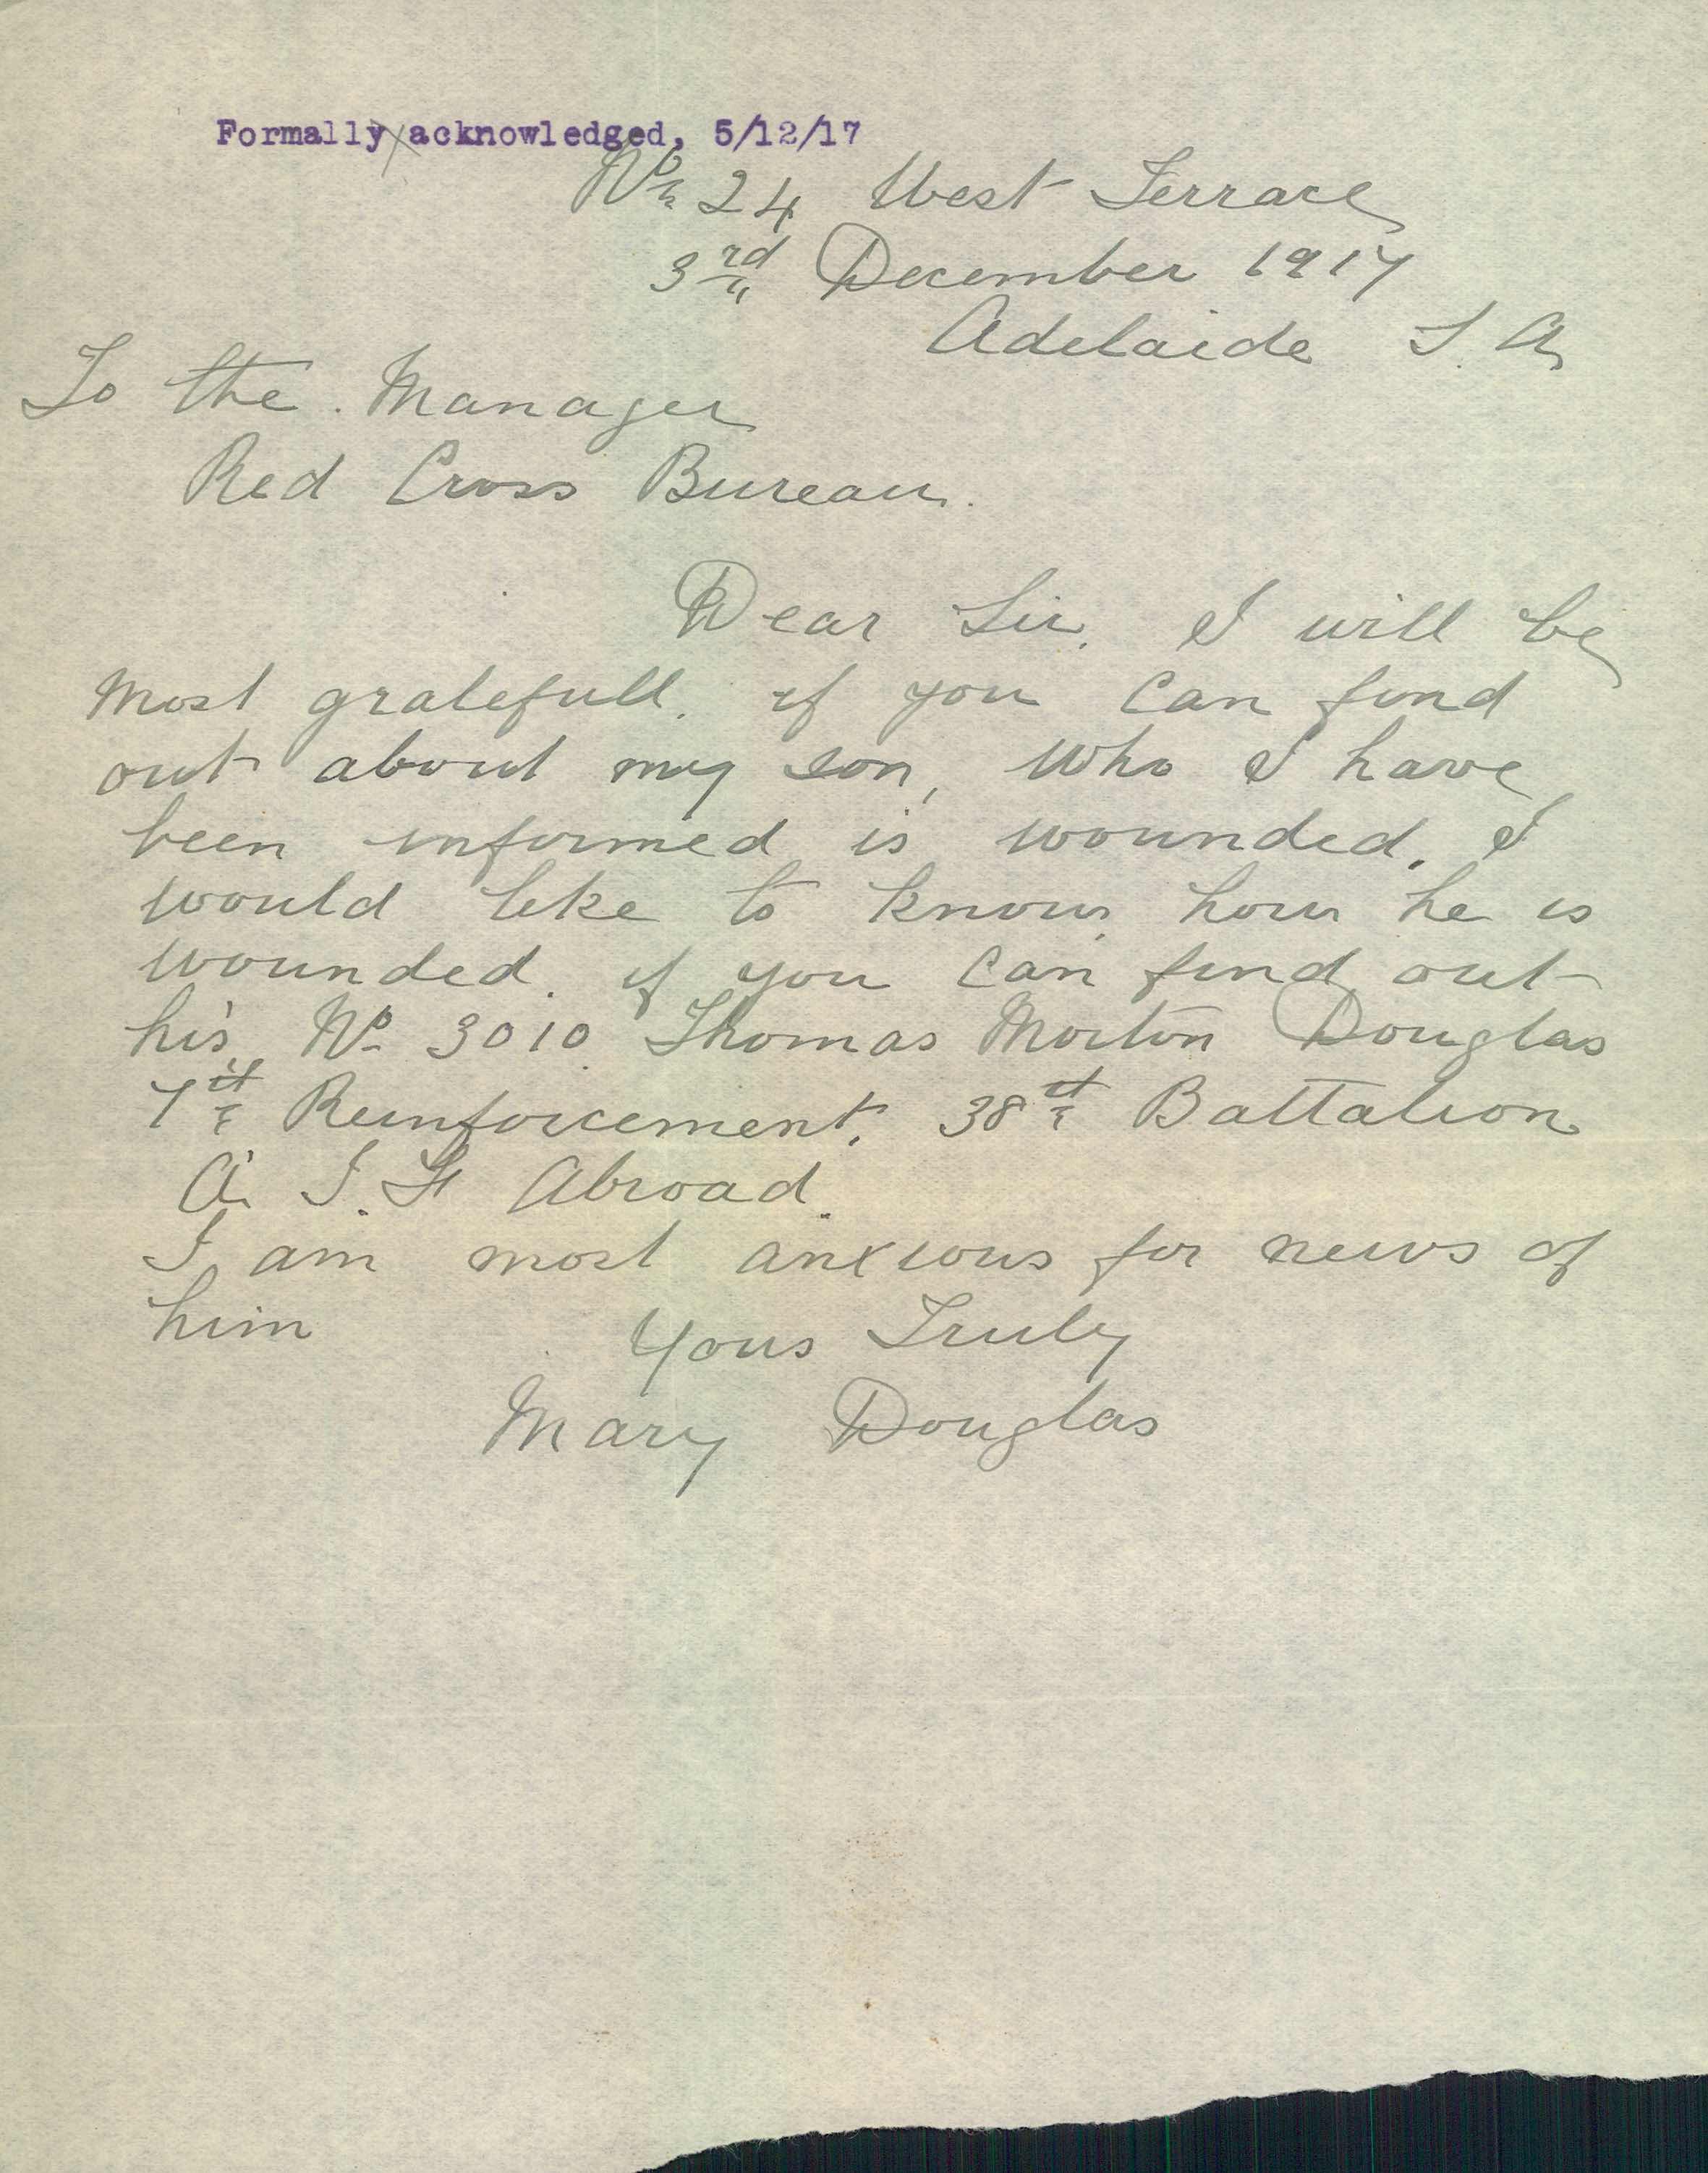 Formally acknowledged, 5/12/17
No 24 West Terrace
3rd December 1917
Adelaide S. A
To the. Manager
Red Cross Bureau.
Dear Sir. I will be
most gratefull. if you can find
out about my son, who I have
been informed is wounded. I
would like to know how he is
wounded. if you can find out
his No 3010 Thomas Morton Douglas
7th Reinforcement. 38th Battalion
A. I. F Abroad.
I am most anxious for news of
him
Yous Truly
Mary Douglas